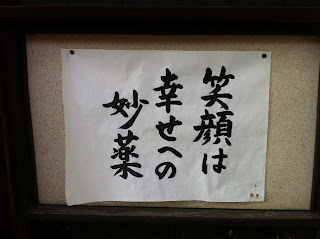 笑顔は
幸せへの
妙薬